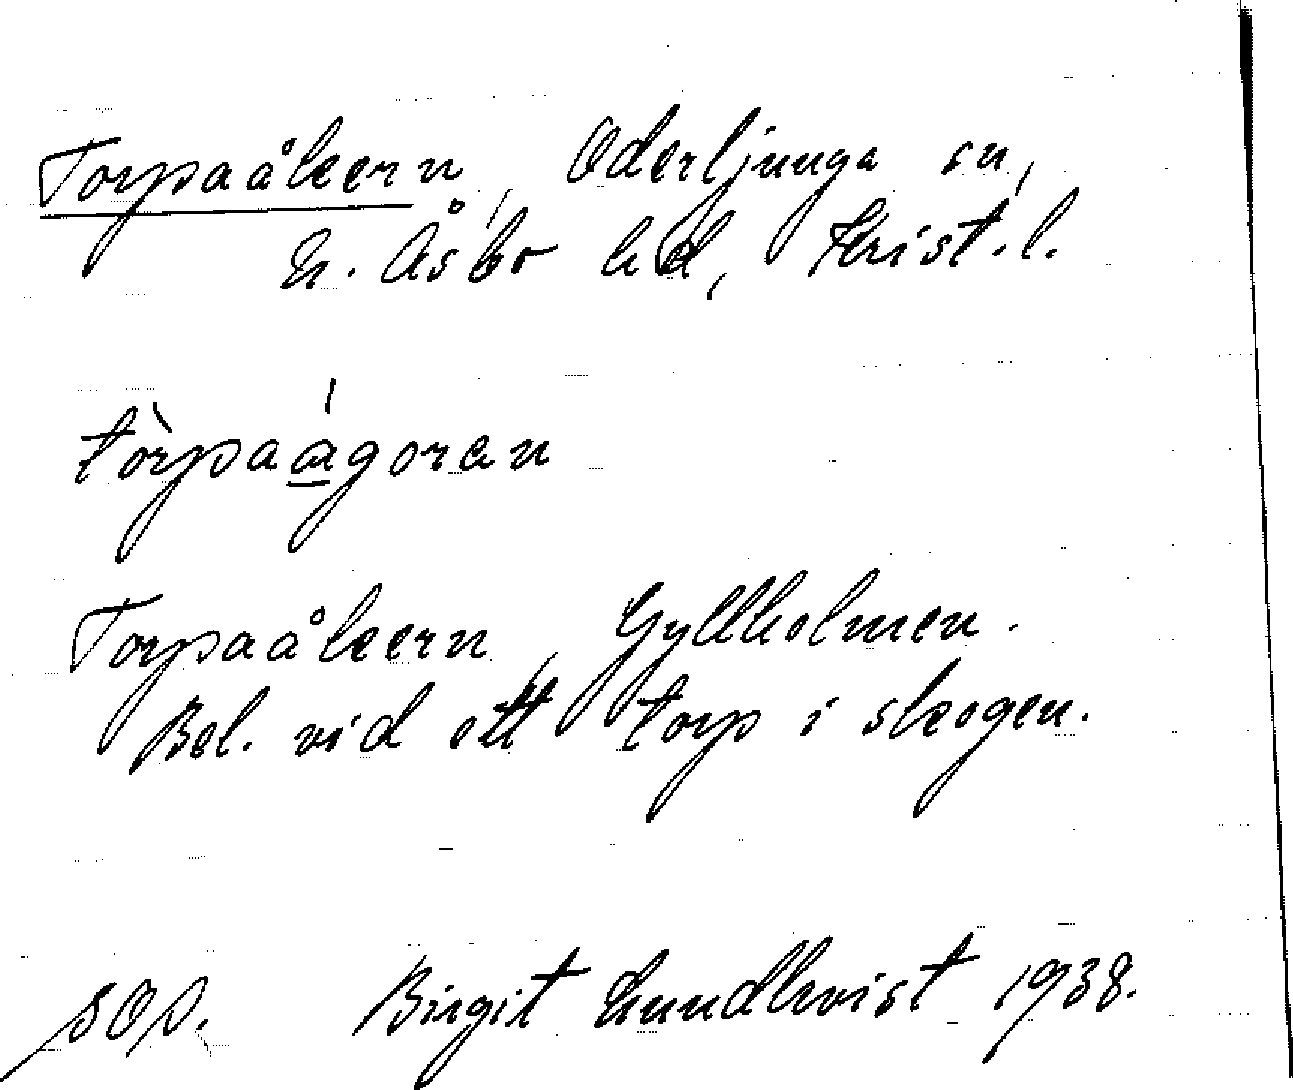 Torpaåkern, Oderljunga sn,
N. Åsbo hd, Krist. l.
tòrpaágoran
Torpaåkern, Gyllholmen.
Bel. vid ett torp i skogen.
Birgit Lundkvist 1938.